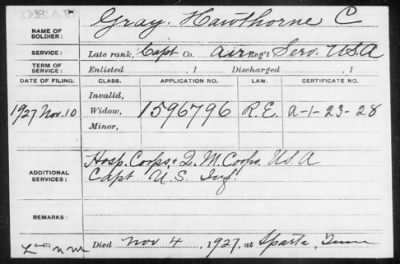 DEAD
NAME OF SOLDIER: Gray, Hawthorne C
SERVICE: Late rank, Capt Co. Air Reg't Serv. USA
TERM OF SERVICE: Enlisted , 1 Discharged , 1
DATE OF FILING. CLASS. APPLICATION NO. LAW. CERTIFICATE NO.
Invalid,
1927 Nov. 10 Widow, 1596796 R.E. A-1-23-28
Minor,
ADDITIONAL SERVICES: Hosp. Corps & Q.M. Corps, USA
Capt U.S. Inf.
REMARKS:
Died Nov 4, 1927, at Sparta, Tenn